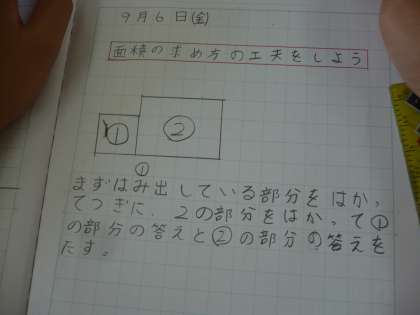 9月6日(金)
面積の求め方の工夫をしよう
① ②
①
まずはみ出している部分をはかっ
てつぎに、2の部分をはかって①
の部分の答えと②の部分の答えを
たす。